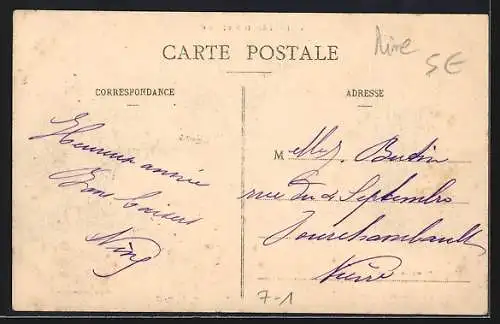 CARTE POSTALE
5 €
CORRESPONDANCE
ADRESSE
Heureuse année
Bons baisers
M elle Budin
rue du 4 Septembre
Fourchambault
Nièvre
7-1